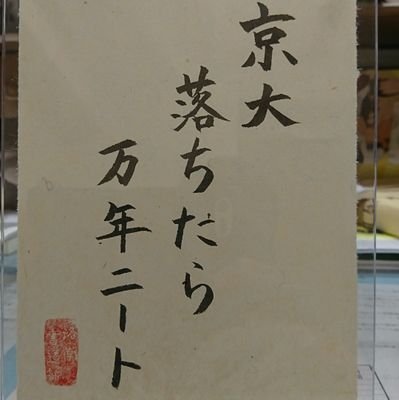 京大
落ちたら
万年ニート